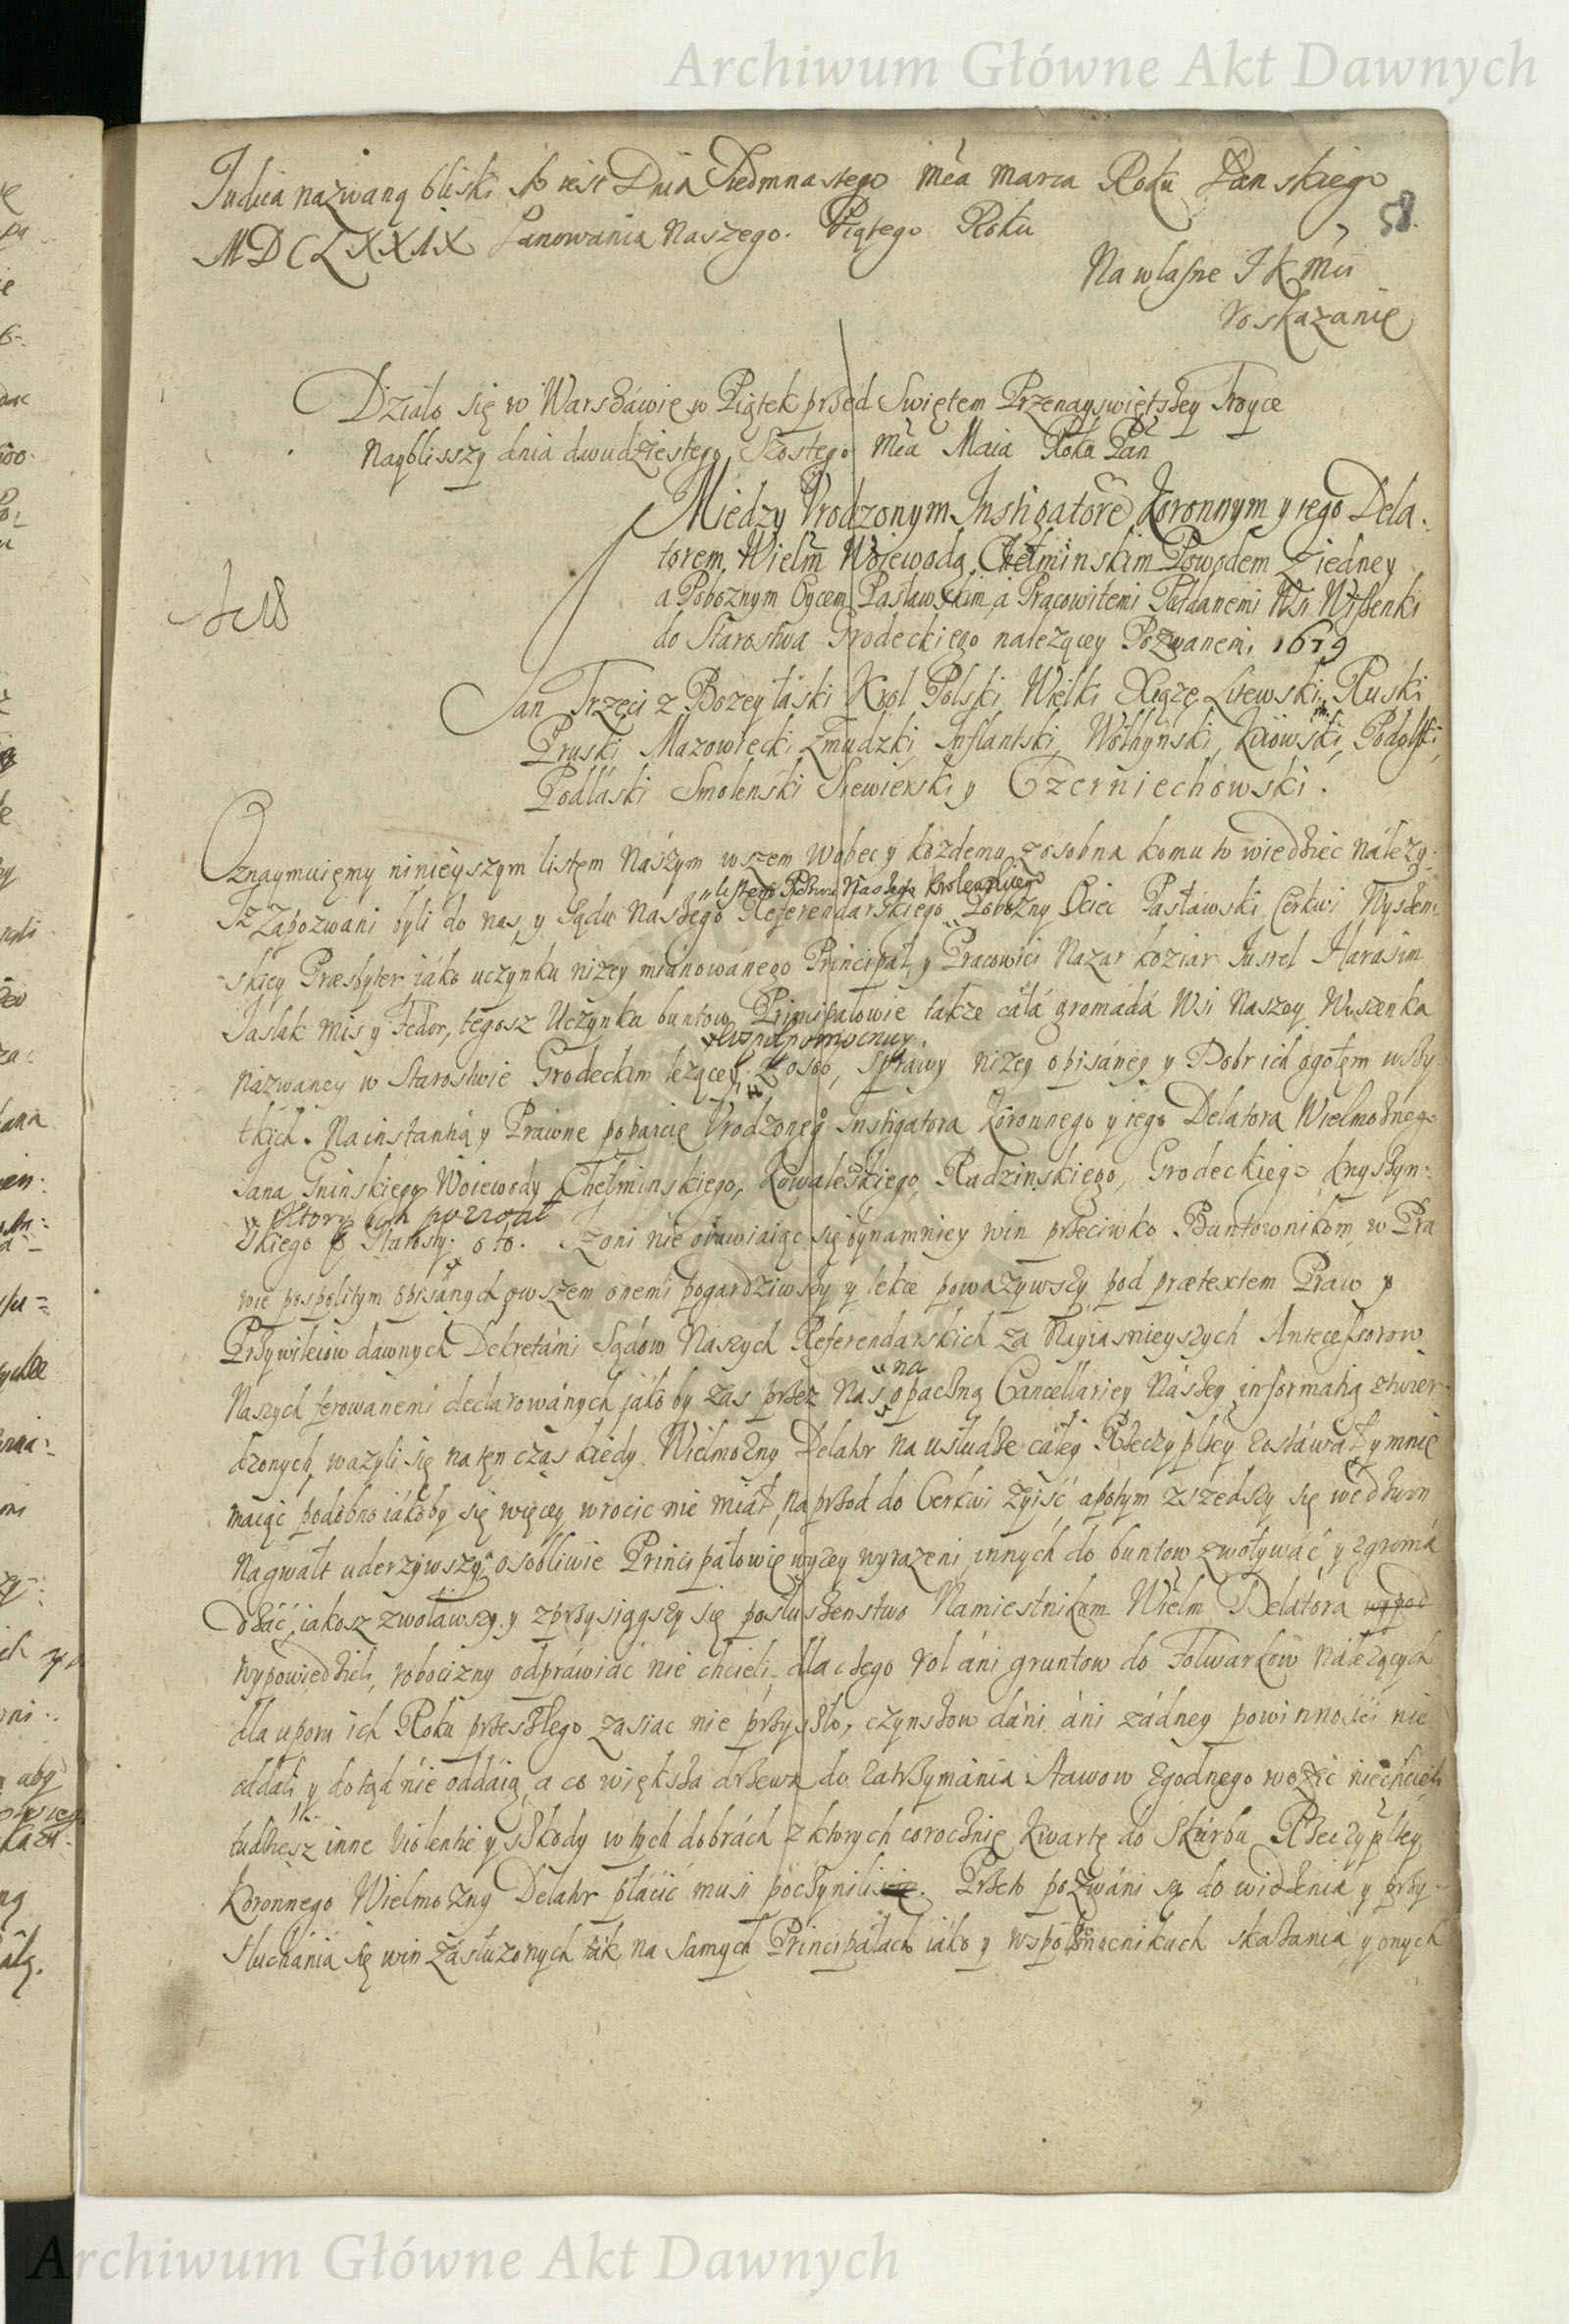 Archiwum Główne Akt Dawnych
Iudica nazwaną bliski to iest Dnia Siedmnastego Mca Marca Roku Pańskiego
58.
MDCLXXIX Panowania Naszego. Piątego Roku
Na własne J K Mci
roskazanie
Działo się w Warszawie w Piątek przed Swiętem Przenayswiętszey Troyce
Nayblisszy dnia dwudziestego Szostego Mca Maia Roku Pań
Między Vrodzonym Instigatore Koronnym y iego Dela-
torem Wielm Woiewodą Chełminskim Powodem z iedney
a Poboznym Oycem Pasławskim, a Pracowitemi Poddanemi Wsi
do Starostwa Grodeckiego nalezącey Pozwanemi 1679
Jan Trzeci z Bozey łaski Krol Polski Wielki Xiążę Litewski, Ruski
Pruski Mazowiecki Zmudzki, Inflantski, Wołhynski, Kiiowski, Podolski,
Podlaski Smolenski Siewierski y Czerniechowski.
Oznaymuięmy ninieyszym listem Naszym wszem wobec y kozdemu zosobna komu to wiedziec należy.
listem
Iż Zapozwani byli do nas, y Sądu Naszego Referendarskiego Pobozny Ociec Pasławski Cerkwi Wyszen-
skiey Præsbyter iáko uczynku nizey miánowánego Principał, y Pracowici Nazar koziar Harasim
Mis y Fedor, tegosz Uczynku buntow Principałowie także cáłá gromádá Wsi Naszey Wyszenka
wspułpomocnicy
názwaney w Starostwie Grodeckim lezącey z osob, Sprawy nizey opisáney y Dobr ich ogołęm wszy-
tkich. Na instantią y Prawne poparcie Vrodzonego Instigatora Koronnego y iego Delatora Wielmożnego
Jana Gninskiego Woiewody Chełminskiego, Kowalewskiego, Radzinskiego, Grodeckiego Knyszyn-
ktory ich pozwał
skiego Starosty. o to. Iz oni nie obawiaiąc się bynamniey win przeciwko Buntownikom w Pra
wie pospolitym opisánych owszem onemi pogardziwszy y lekce powazywszy pod prætextem Praw y
Przywileiow dawnych Dekretámi Sądow Naszych Referendarskich za Nayiasnieyszych Antecessorow
na
Naszych ferowanemi declarowánych jáko by zas przez Nas opaczną Cancellariey Nászey informatią ztwier-
dzonych, wazyli się na ten czas kiedy Wielmożny Delator na usłudze cáłey Rzeczypltey zostáwał y mnie
maiąc podobno iákoby się więcey wrocic nie miał, naprzod do Cerkwi zyiść, a potym zszedszy się we dzwon
Na gwałt uderzywszy, osobliwie Principałowie wyzey wyrazeni innych do buntow zwoływáć y zgromá
dzáć, iakosz zwoławszy y zprzysiągszy się posłuszenstwo Namiestnikom Wielm Delátora
wypowiedzieli, robocizny odpráwiáć nie chcieli, dla czego rol áni gruntow do Folwarkow náleżących
dla uporu ich Roku przeszłego zasiac nie przyszło, czynszow dáni áni żádney powinności nie
oddali y dotąd nie oddaią, a co większa drzewa do zatrzymánia Stawow zgodnego wozic niechcieli
tudziesz inne violentie y szkody w tych dobrách z ktorych corocznie kwartę do Skárbu Rzeczypltey
Koronnego Wielmożny Delator płácić musi poczynili. Przeto pozwáni są do widzenia y przy-
słuchánia się win zásłuzonych ták na samych Principałach iáko y wspołpomocnikach skazania y onych
Archiwum Główne Akt Dawnych